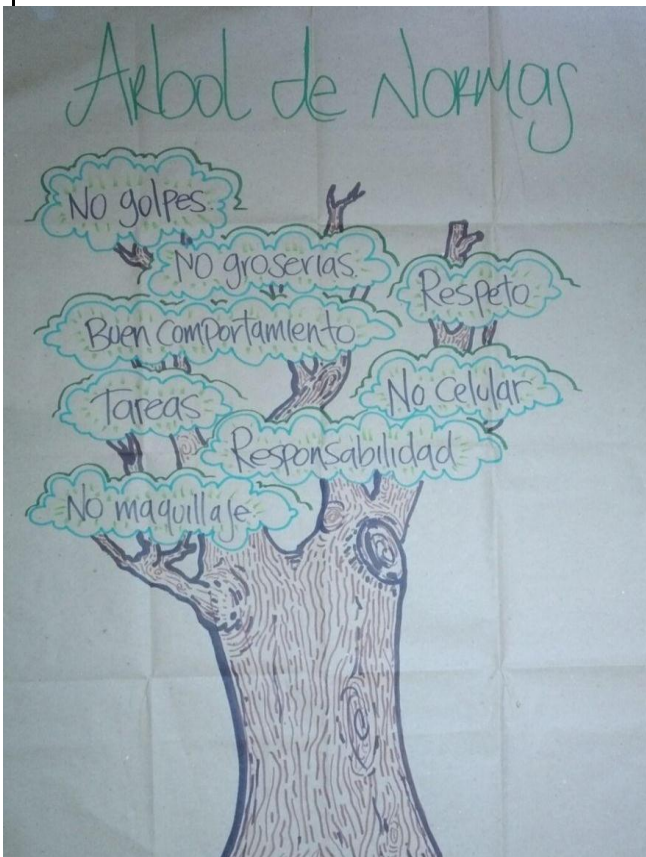 Arbol de Normas
No golpes.
No groserias.
Respeto
Buen comportamiento
Tareas
No celular
Responsabilidad
No maquillaje